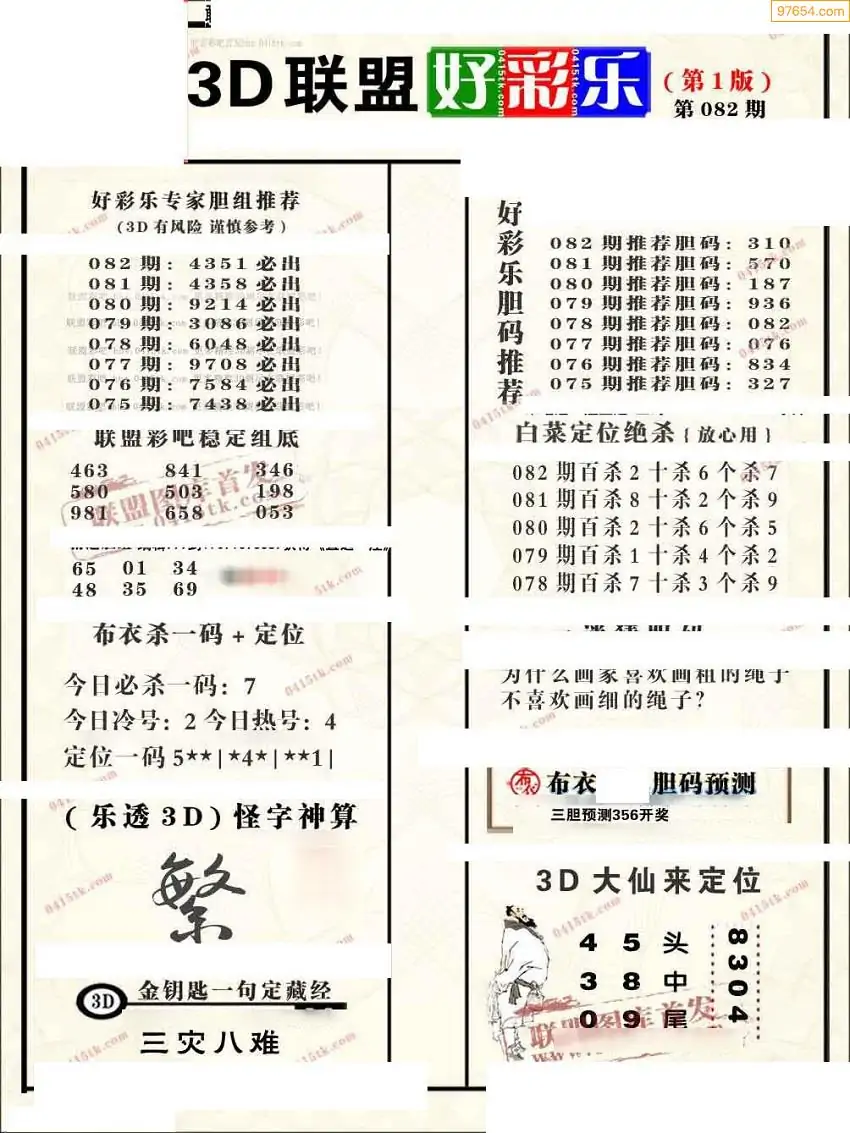 97654.com
3D联盟好彩乐(第1版)
第 082 期
好彩乐专家胆组推荐
(3D有风险 谨慎参考)
082期: 4351必出
081期: 4358必出
080期: 9214必出
079期: 3086必出
078期: 6048必出
077期: 9708必出
076期: 7584必出
075期: 7438必出
联盟彩吧稳定组底
463 841 346
580 503 198
981 658 053
联盟图库首发
0415tk.com
65 01 34
48 35 69
布衣杀一码+定位
今日必杀一码: 7
今日冷号: 2 今日热号: 4
定位一码 5**|*4*|**1|
(乐透3D)怪字神算
繁
3D 金钥匙一句定藏经
三灾八难
好彩乐胆码推荐
082期推荐胆码: 310
081期推荐胆码: 570
080期推荐胆码: 187
079期推荐胆码: 936
078期推荐胆码: 082
077期推荐胆码: 076
076期推荐胆码: 834
075期推荐胆码: 327
白菜定位绝杀{放心用}
082期百杀2十杀6个杀7
081期百杀8十杀2个杀9
080期百杀2十杀6个杀5
079期百杀1十杀4个杀2
078期百杀7十杀3个杀9
为什么画家喜欢画粗的绳子
不喜欢画细的绳子?
布衣 布衣 胆码预测
三胆预测356开奖
3D大仙来定位
4 5 头
3 8 中
0 9 尾
8304
联盟图库首发